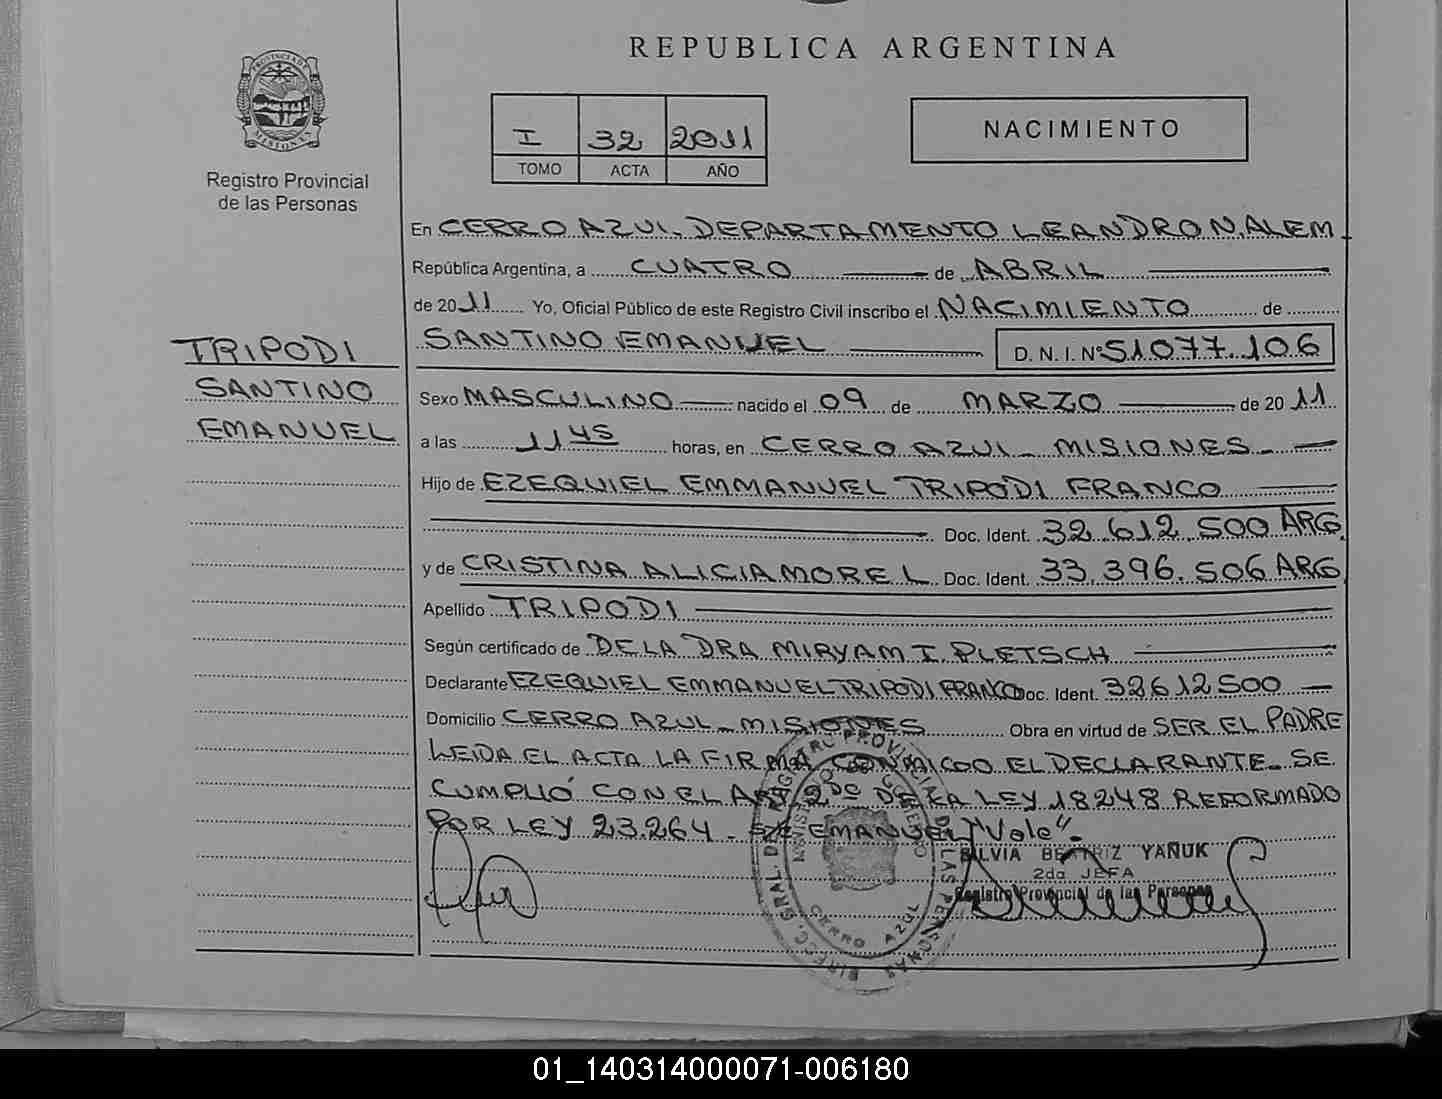 REPUBLICA ARGENTINA
PROVINCIA DE MISIONES
Registro Provincial
de las Personas
I 32 2011
TOMO ACTA AÑO
NACIMIENTO
En CERRO AZUL. DEPARTAMENTO LEANDRO N. ALEM
República Argentina, a CUATRO de ABRIL
de 2011 Yo, Oficial Público de este Registro Civil inscribo el NACIMIENTO de
SANTINO EMANUEL D. N. I. Nº 51.077.106
TRIPODI
SANTINO
EMANUEL
Sexo MASCULINO nacido el 09 de MARZO de 2011
a las 11 45 horas, en CERRO AZUL - MISIONES -
Hijo de EZEQUIEL EMMANUEL TRIPODI FRANCO
Doc. Ident. 32.612.500 ARG.
y de CRISTINA ALICIA MOREL Doc. Ident. 33.396.506 ARG
Apellido TRIPODI
Según certificado de DE LA DRA MIRYAM I. PLETSCH
Declarante EZEQUIEL EMMANUEL TRIPODI FRANCO Doc. Ident. 32612500
Domicilio CERRO AZUL - MISIONES Obra en virtud de SER EL PADRE
LEIDA EL ACTA LA FIRMA CONMIGO EL DECLARANTE - SE
CUMPLIÓ CON EL ART 2DO DE LA LEY 18248 REFORMADO
POR LEY 23.264 - EMANUEL "Vale" -
SILVIA BEATRIZ YAÑUK
2da JEFA
Registro Provincial de las Personas
DIRECC. GRAL. DEL REGISTRO PROVINCIAL DE LAS PERSONAS
MINISTERIO DE GOBIERNO
CERRO AZUL
01_140314000071-006180